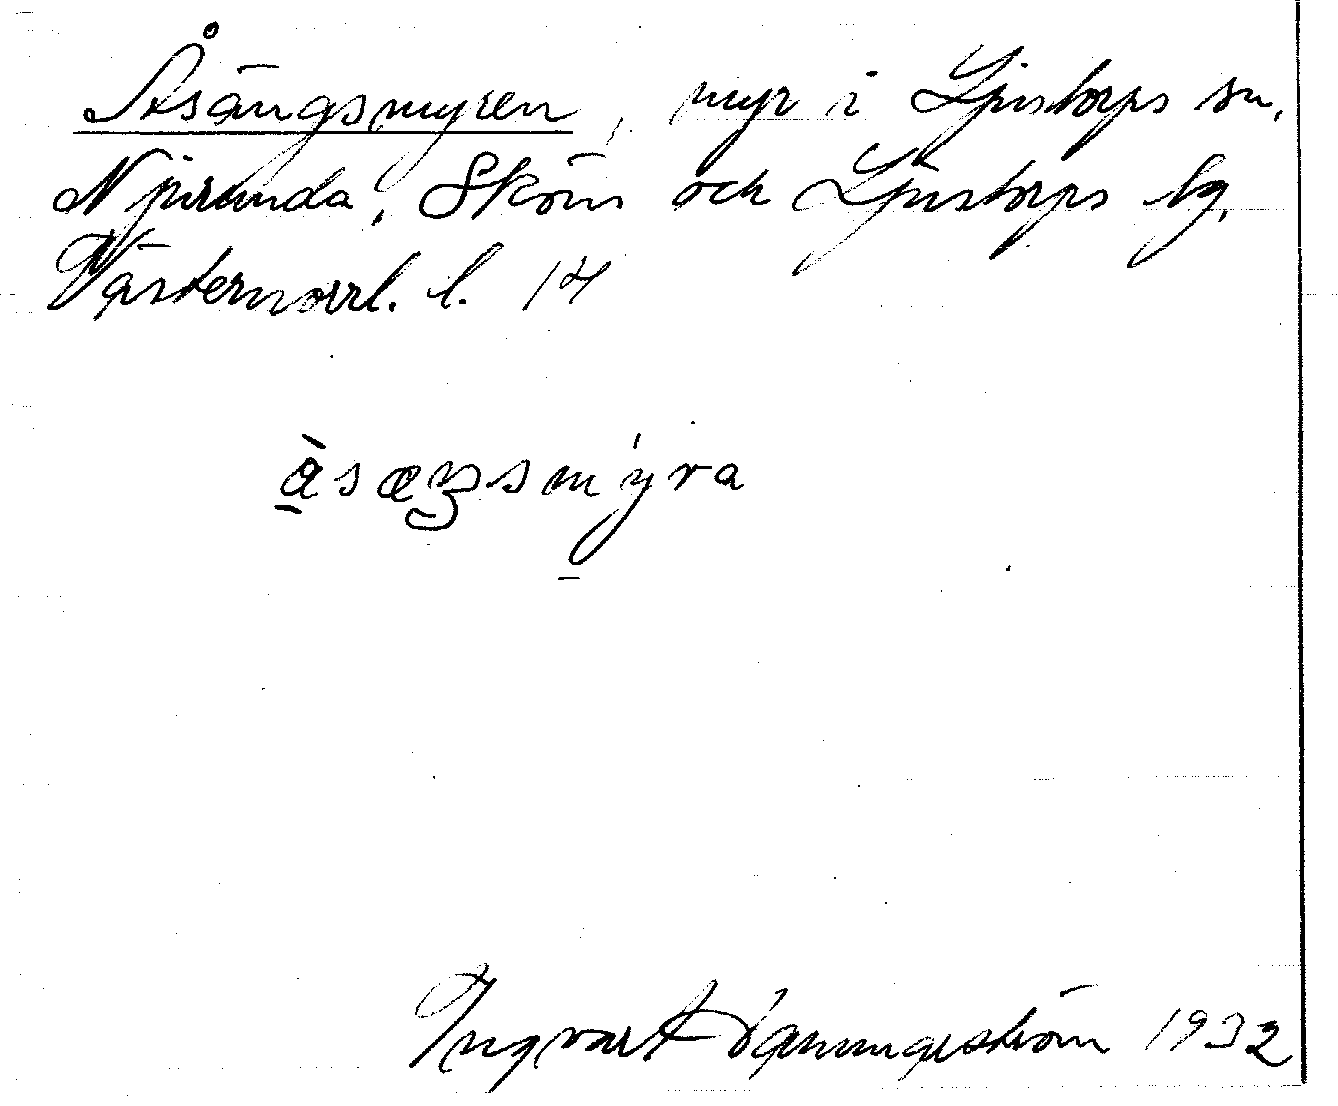 Åsängsmyren, myr i Ljustorps sn.
Njurunda, Sköns och Ljustorps tg,
Västernorrl. l. 14
åsæŋsmýra
Ingvart 1932